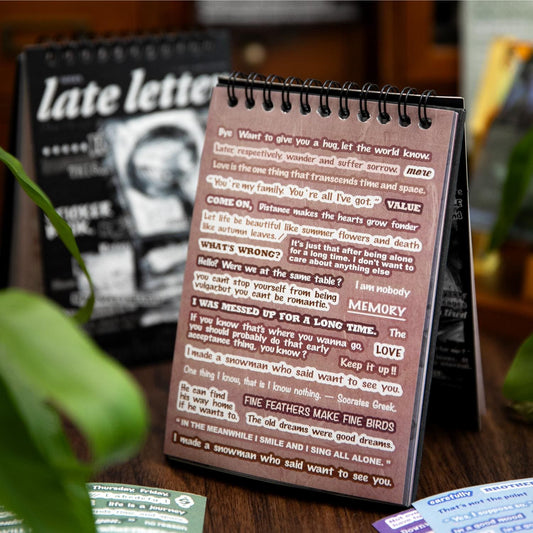 late letter
Bye Want to give you a hug, let the world know.
Later, respectively, wander and suffer sorrow. more
Love is the one thing that transcends time and space.
"You're my family. You're all I've got." VALUE
COME ON, Distance makes the hearts grow fonder
Let life be beautiful like summer flowers and death
like autumn leaves. /
WHAT'S WRONG? It's just that after being alone
for a long time. I don't want to
care about anything else
Hello? Were we at the same table?
I am nobody
you can't stop yourself from being
vulgar,but you cant be romantic.
MEMORY
I WAS MESSED UP FOR A LONG TIME. The
If you know that's where you wanna go,
you should probably do that early
acceptance thing, you know?
LOVE
Keep it up!!
I made a snowman who said want to see you.
One thing I know, that is I know nothing. — Socrates Greek.
He can find
his way home
if he wants to.
FINE FEATHERS MAKE FINE BIRDS
The old dreams were good dreams.
" IN THE MEANWHILE I SMILE AND I SING ALL ALONE, "
I made a snowman who said want to see you.
Thursday, Friday,
life is a journey
no reason
carefully BROTHER
That's not the point
I suppose
in a good mood